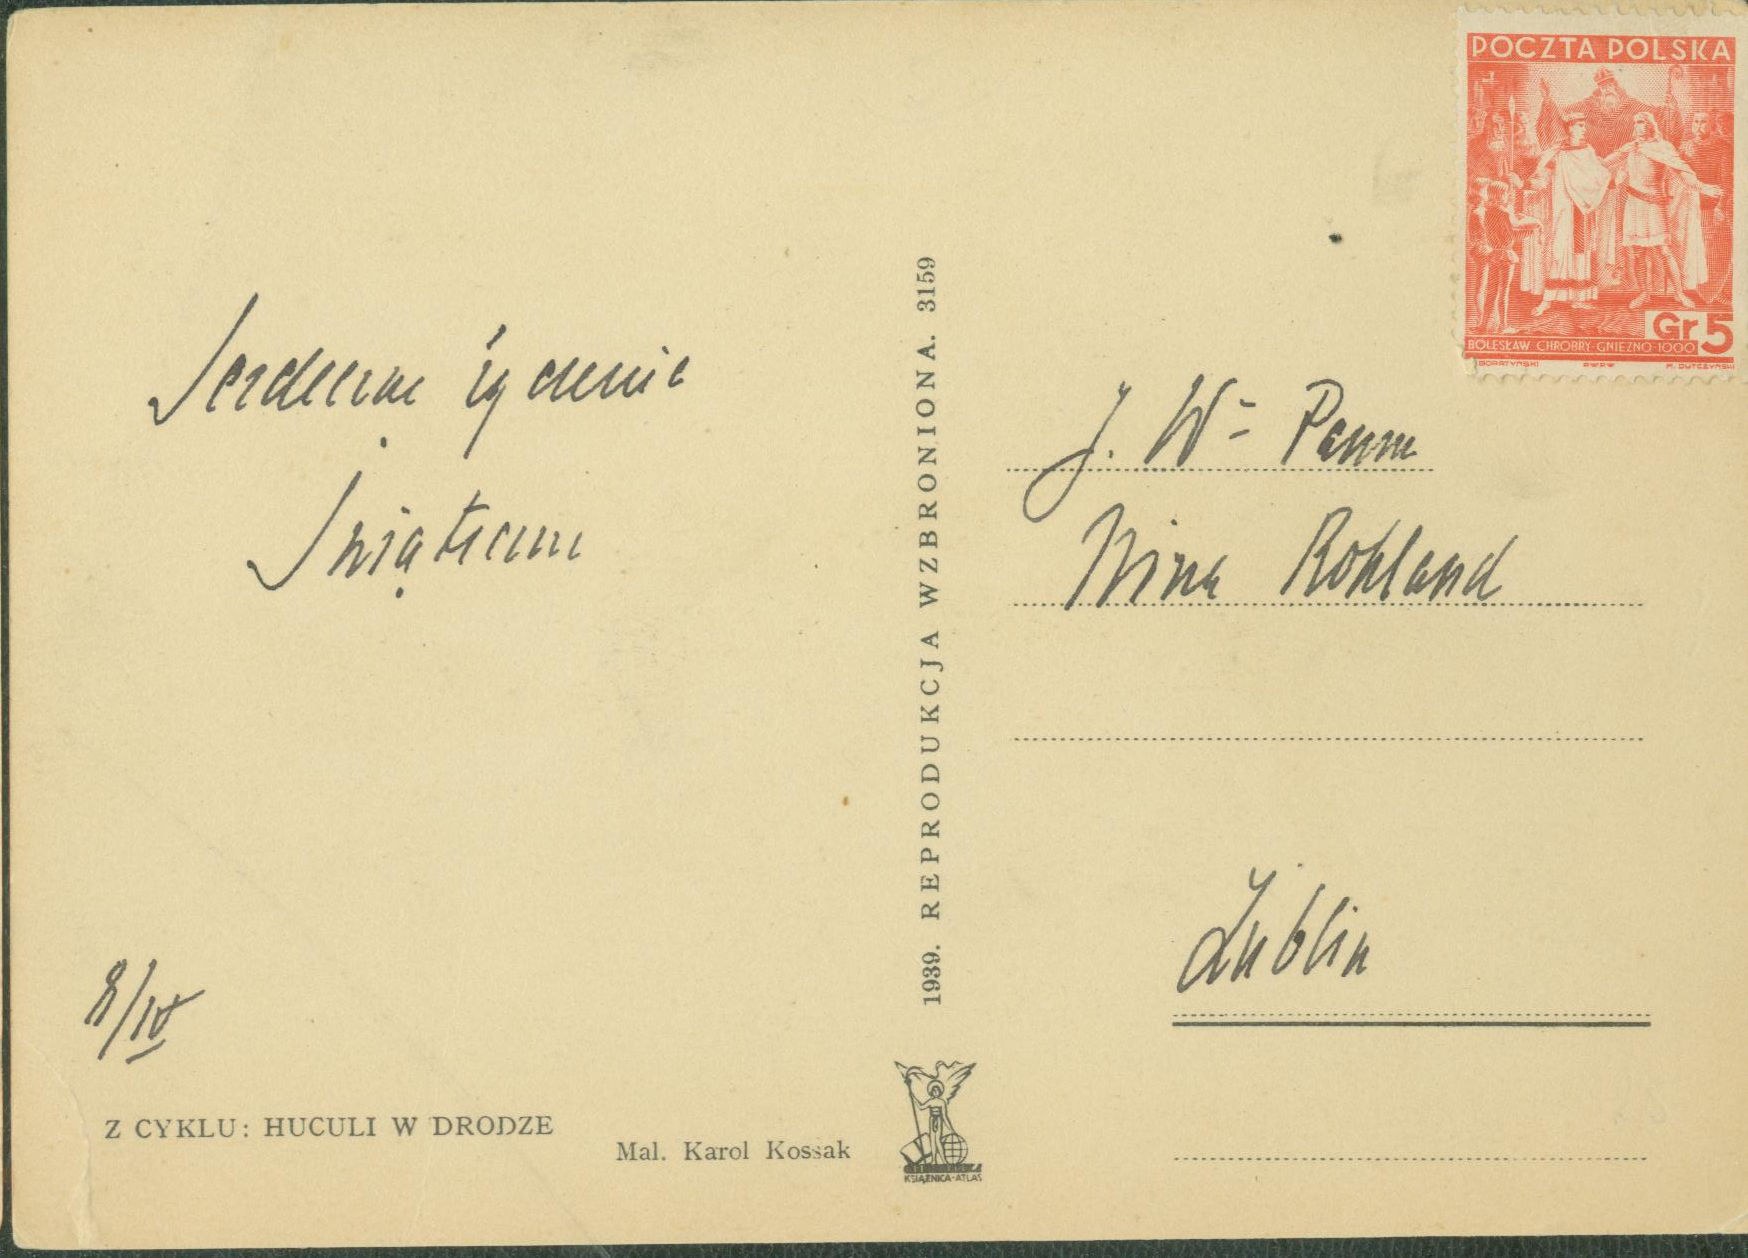 Serdeczne życzenia
Świąteczne
8/IV
Z CYKLU: HUCULI W DRODZE
Mal. Karol Kossak
1939. REPRODUKCJA WZBRONIONA. 3159
KSIĄŻNICA-ATLAS
POCZTA POLSKA
Gr 5
BOLESŁAW CHROBRY-GNIEZNO-1000
BORATYŃSKI PWPW M. DUTCZYŃSKI
J. W= Panna
Nina Rohland
Lublin